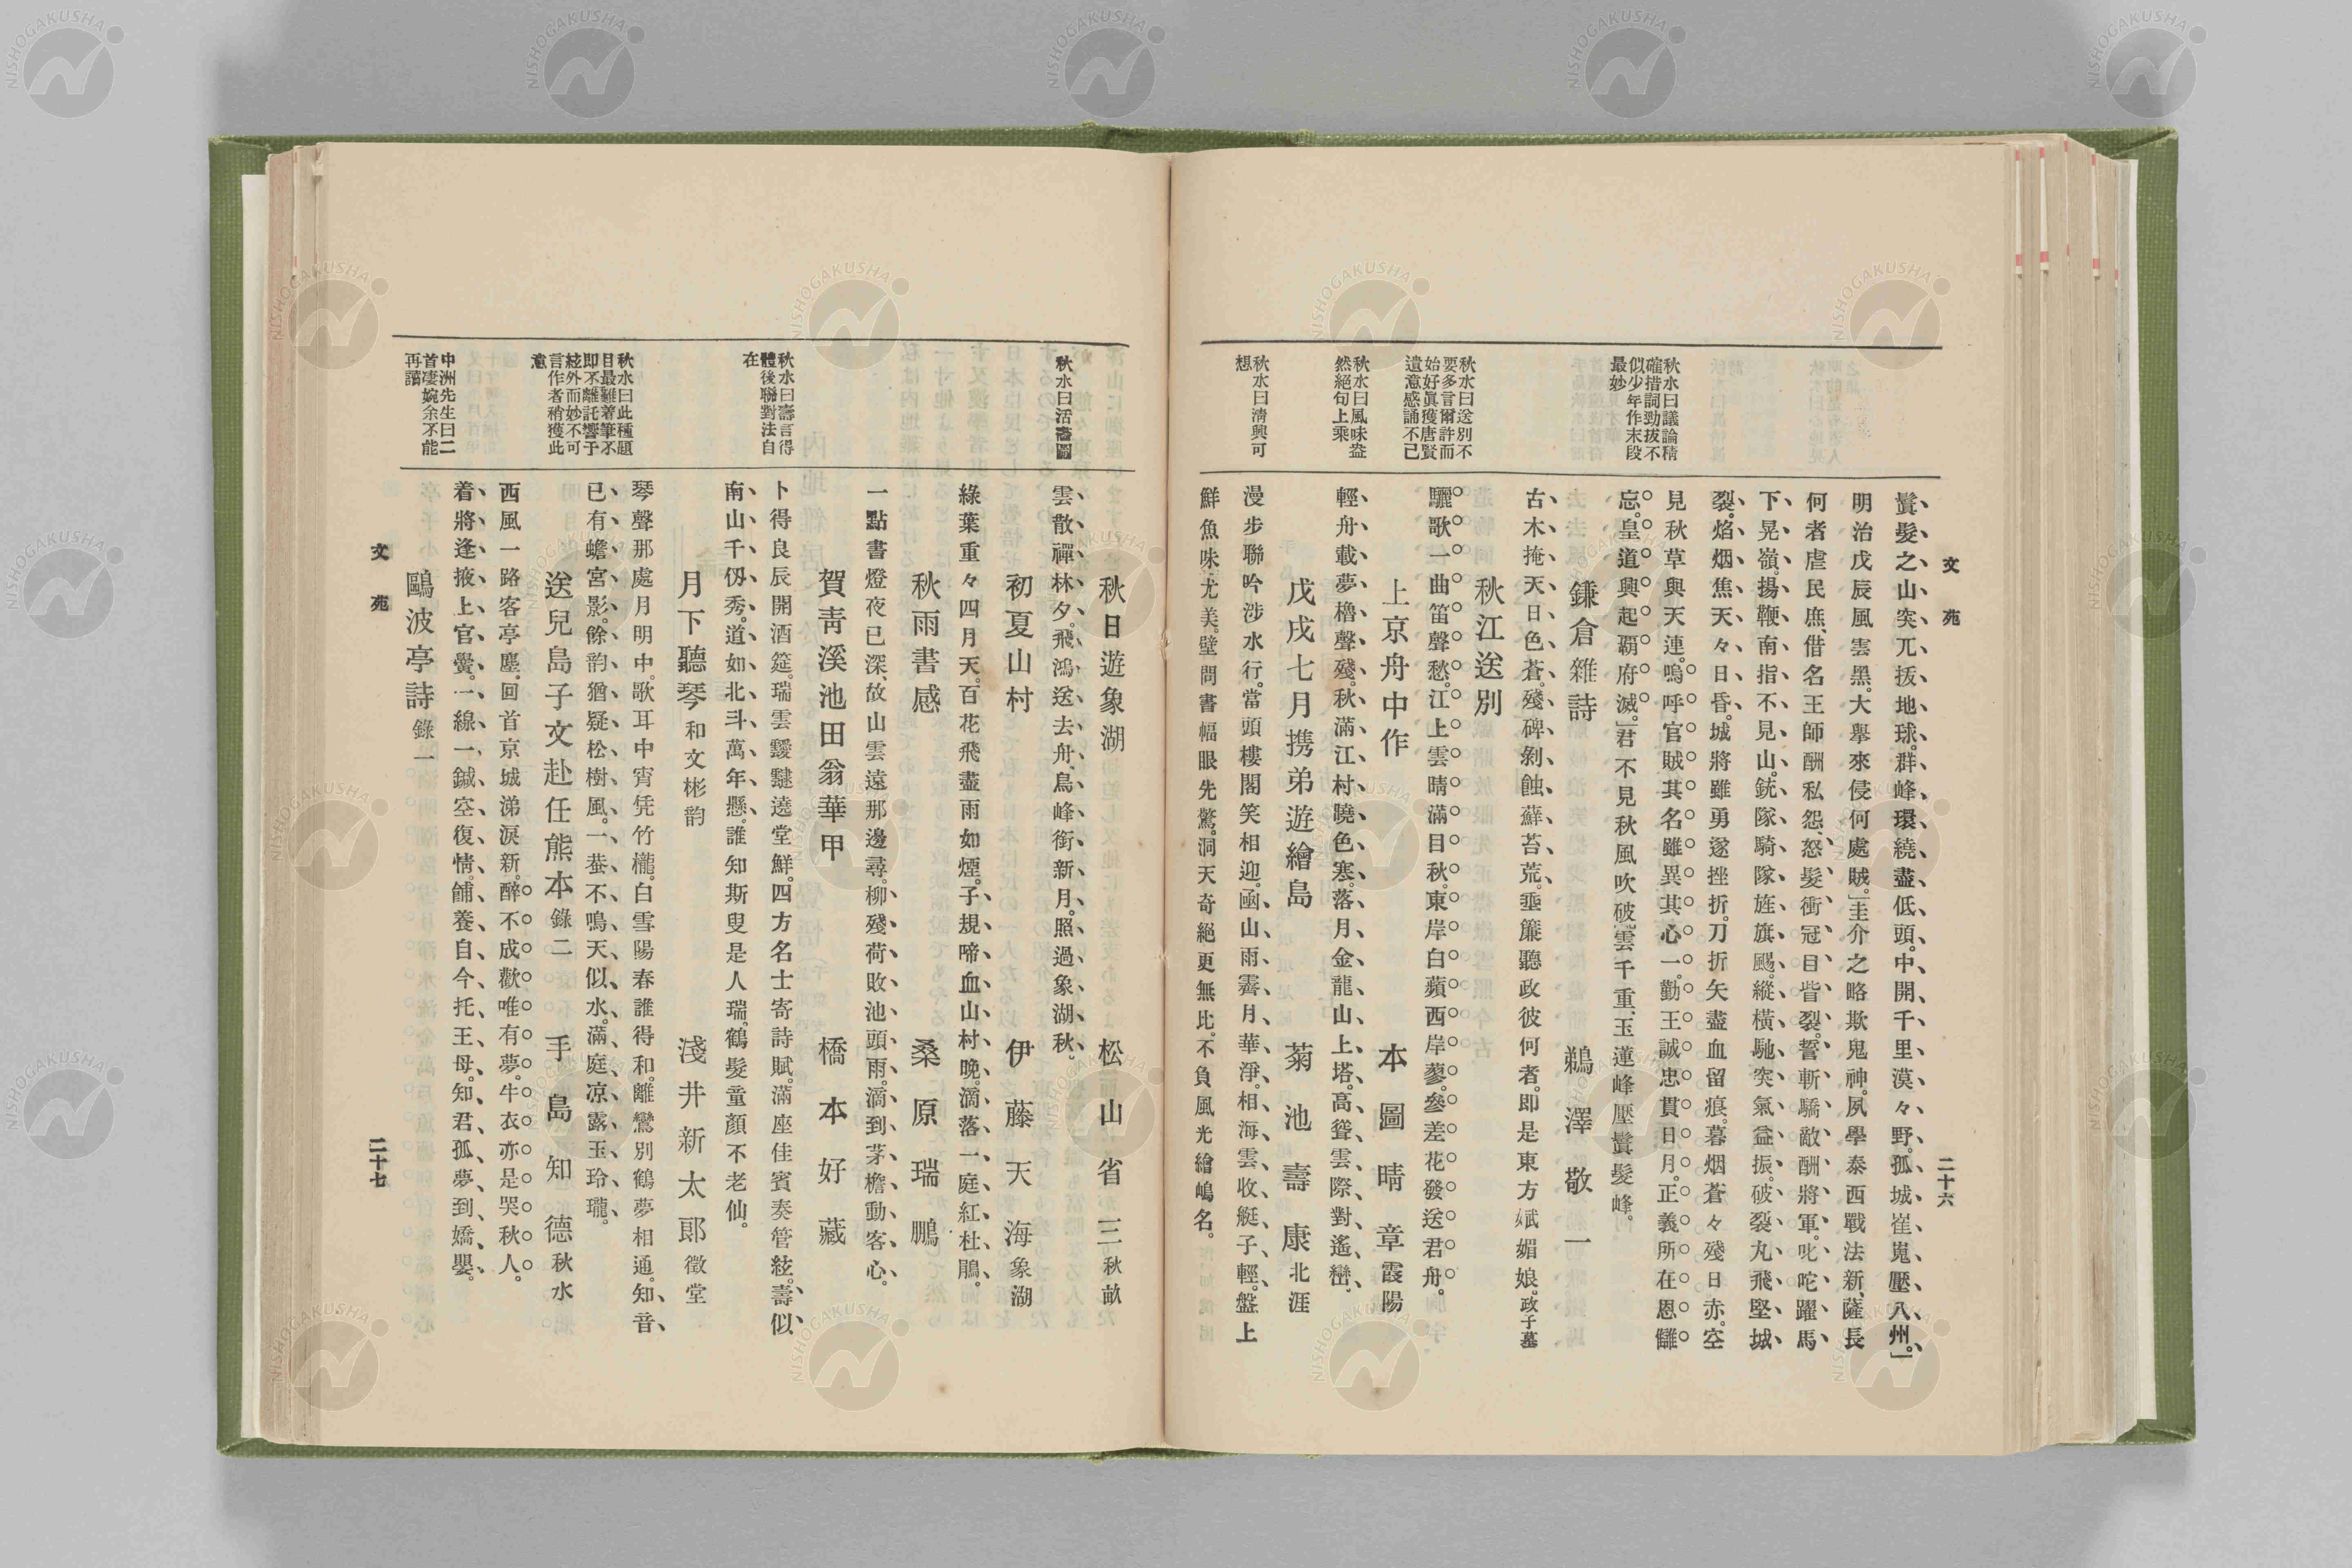 文苑
二十六
鬒髮之山突兀抜地球。群峰環繞盡低頭。中開千里漠々野。孤城崔嵬壓八州。」
明治戊辰風雲黑。大擧來侵何處賊。」圭介之略欺鬼神。夙學泰西戰法新、薩長
何者虐民庶、借名王師酬私怨、怒髮衝冠目眥裂。誓斬驕敵酬將軍。叱咤躍馬
下晃嶺。揚鞭南指不見山。銃隊騎隊旌旗颺。縱橫馳突氣益振。破裂丸飛堅城
裂。焰烟焦天々日昏。城將雖勇遂挫折。刀折矢盡血留痕。暮烟蒼々殘日赤。空
見秋草與天連。嗚呼官賊其名雖異其心一。勤王誠忠貫日月。正義所在恩讎
忘。皇道興起覇府滅。」君不見秋風吹破雲千重、玉蓮峰壓鬒髮峰。
秋水曰議論精
確措詞勁拔不
似少年作末段
最妙
鎌倉雜詩
鵜澤敬一
古木掩天日色蒼。殘碑剝蝕蘇苔荒。垂簾聽政彼何者。卽是東方娬媚娘。政子墓
秋江送別
驪歌一曲笛聲愁。江上雲晴滿目秋。東岸白蘋西岸蓼。參差花發送君舟。
秋水曰送別不
要多言爾許而
始好眞獲唐賢
遺意感誦不已
上京舟中作
本圖晴章霞陽
輕舟載夢櫓聲殘。秋滿江村曉色寒。落月金龍山上塔。高聳雲際對遙巒。
秋水曰風味盎
然絕句上乘
戊戌七月携弟遊繪島
菊池壽康北涯
漫步聯吟涉水行。當頭樓閣笑相迎。凾山雨霽月華淨。相海雲收艇子輕。盤上
鮮魚味尤美。壁間書幅眼先驚。洞天奇絕更無比。不負風光繪嶋名。
秋水曰淸興可
想
秋日遊象湖
松山省三秋畝
雲散禪林夕。飛鴻送去舟。鳥峰銜新月。照過象湖秋。
秋水曰活畵圖
初夏山村
伊藤天海象湖
綠葉重々四月天。百花飛盡雨如煙。子規啼血山村晚。滴落一庭紅杜鵑。
秋雨書感
桑原瑞鵬
一點書燈夜已深、故山雲遠那邊尋。柳殘荷敗池頭雨。滴到茅檐動客心。
賀靑溪池田翁華甲
橋本好藏
卜得良辰開酒筵。瑞雲靉靆遶堂鮮。四方名士寄詩賦。滿座佳賓奏管絃。壽似
南山千仭秀。道如北斗萬年懸。誰知斯叟是人瑞。鶴髮童顏不老仙。
秋水曰壽言得
體後聯對法自
在
月下聽琴和文彬韵
淺井新太郞徵堂
琴聲那處月明中。歌耳中宵凭竹櫳。白雪陽春誰得和。離鸞別鶴夢相通。知音
已有蟾宮影。餘韵猶疑松樹風。一蛬不鳴天似水。滿庭凉露玉玲瓏。
秋水曰此種題
目最難着筆不
卽不離託響于
絃外而妙不可
言作者稍獲此
意
送兒島子文赴任熊本錄二
手島知德秋水
西風一路客亭塵。回首京城涕淚新。醉不成歡唯有夢。牛衣亦是哭秋人。
着將逢掖上官黌。一線一鍼空復情。餔養自今托王母。知君孤夢到嬌嬰。
中洲先生曰二
首凄婉余不能
再讀
鷗波亭詩錄一
文苑
二十七